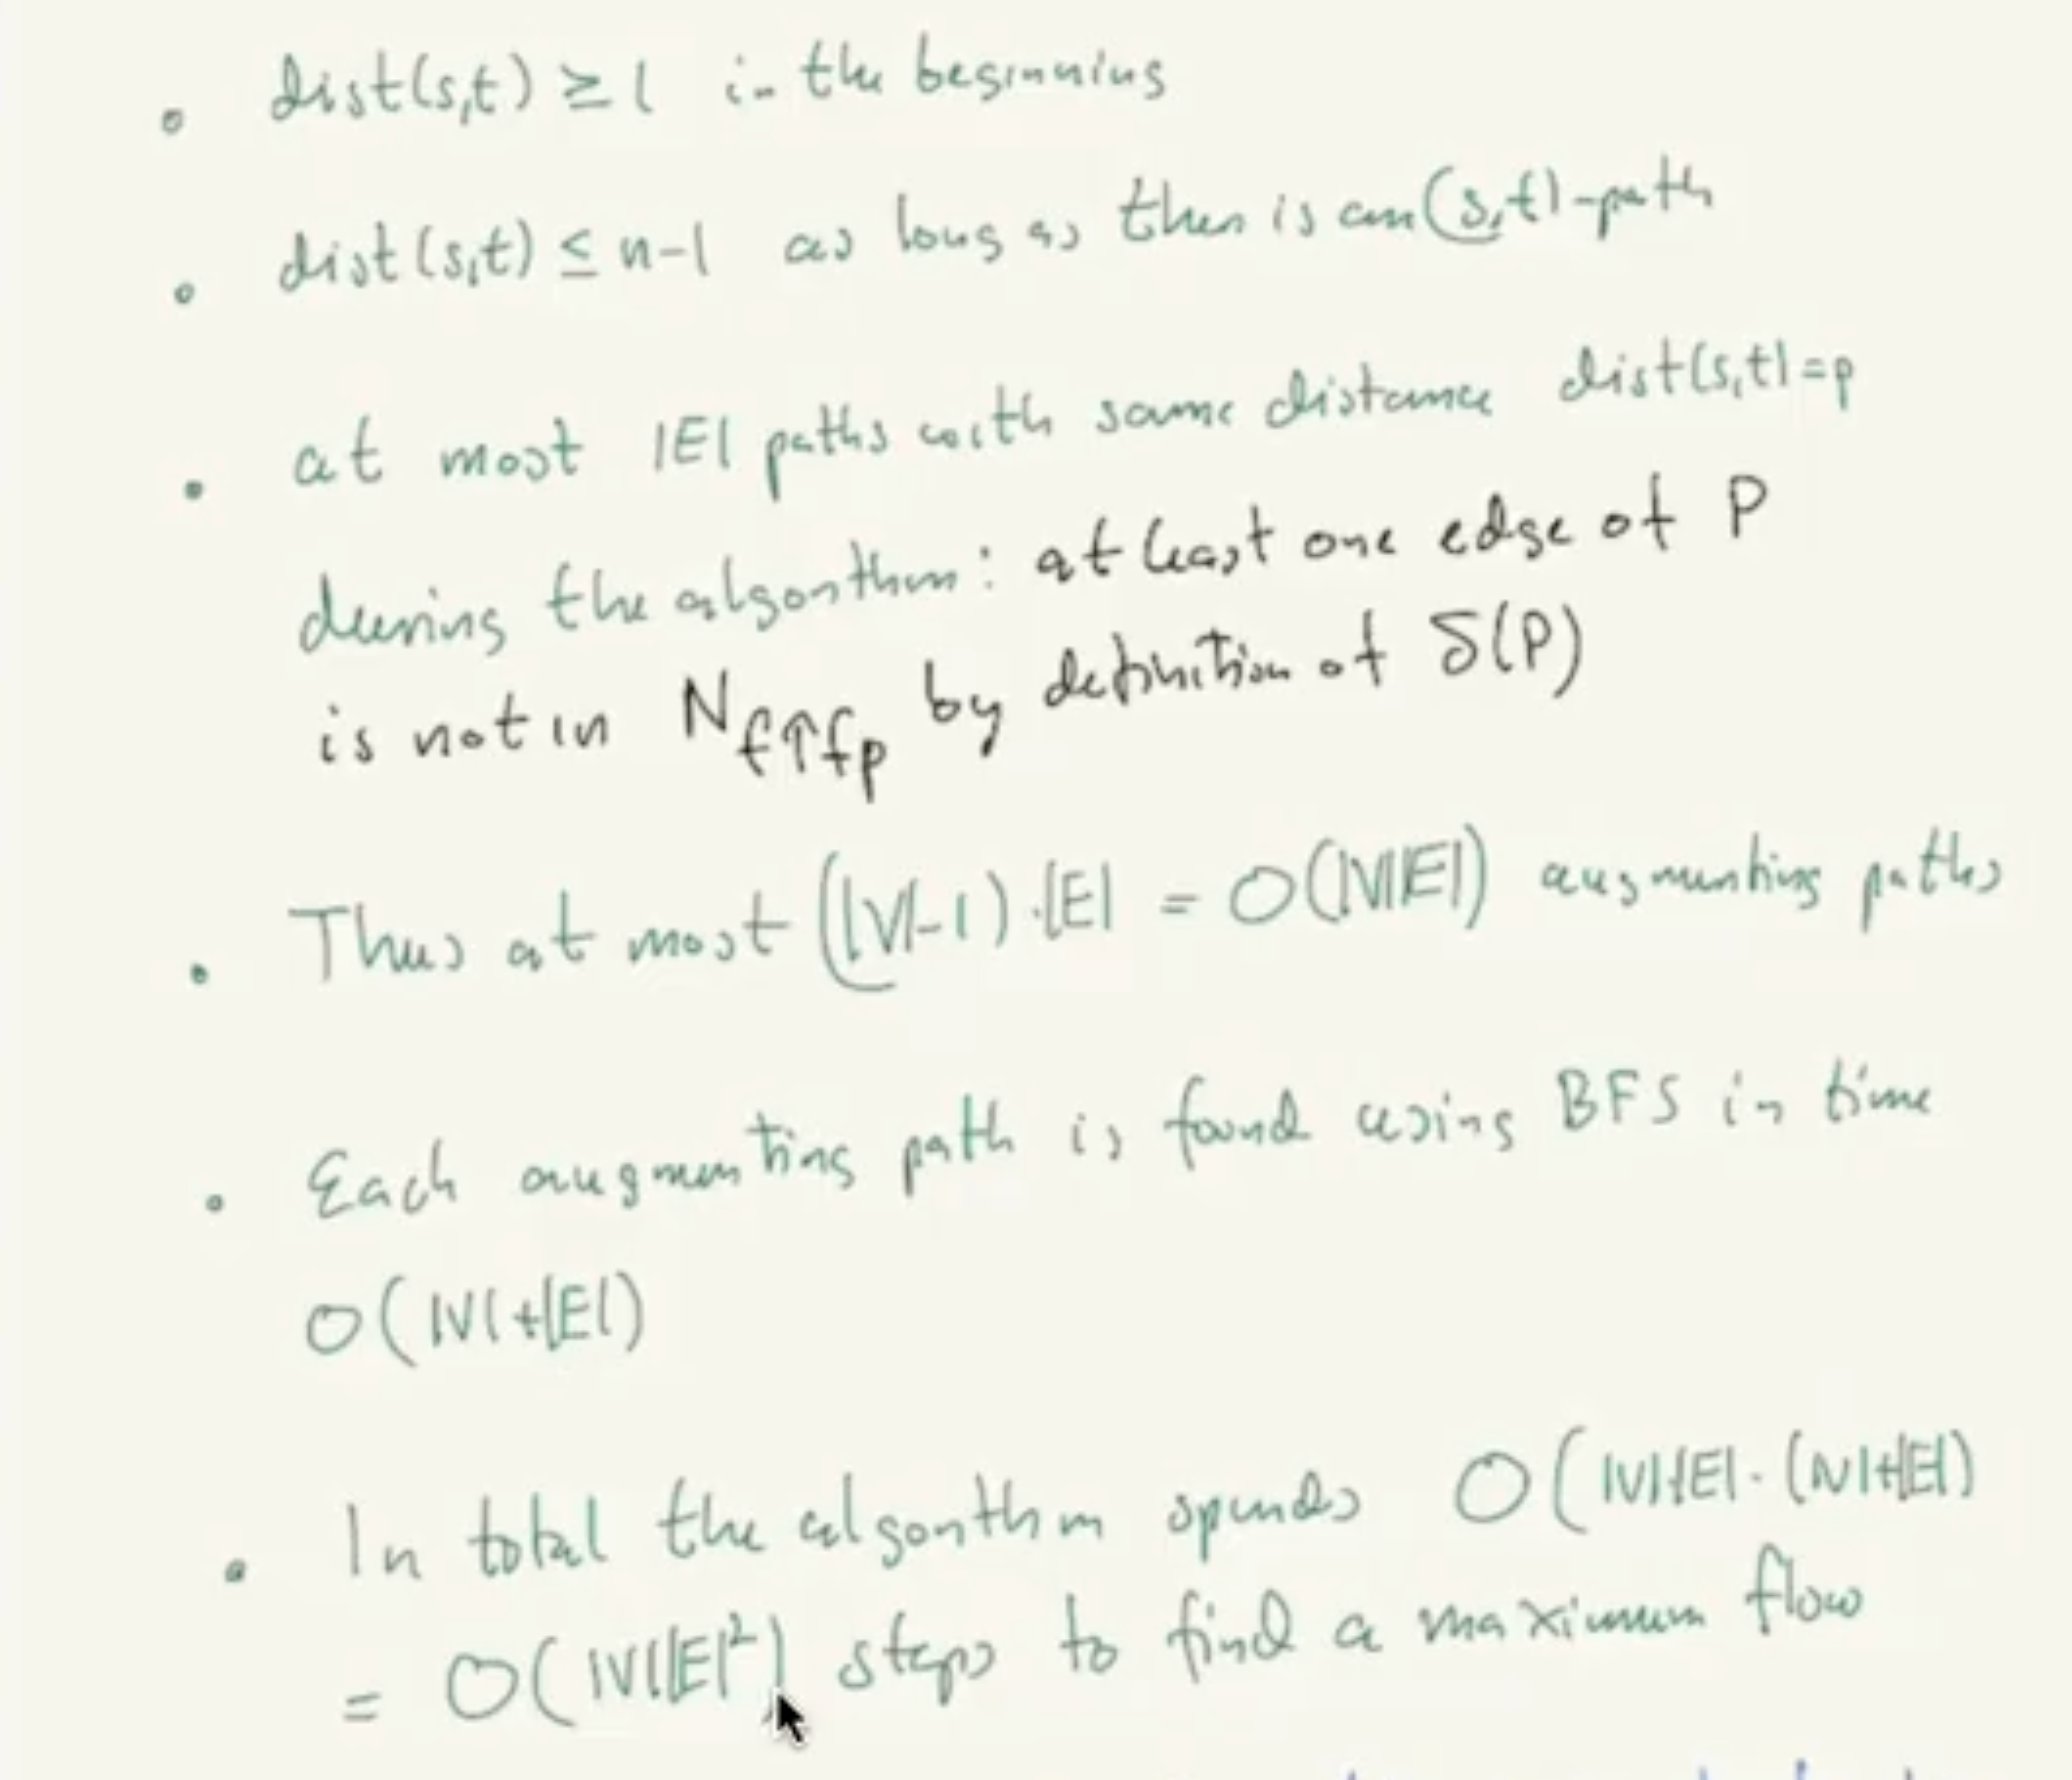 • dist(s,t) ≥ 1 in the beginning
• dist(s,t) ≤ n-1 as long as there is an (s,t)-path
• at most |E| paths with same distance dist(s,t)=p
during the algorithm: at least one edge of P
is not in N_{f↑f_p} by definition of δ(P)
• Thus at most (|V|-1)·|E| = O(|V||E|) augmenting paths
• Each augmenting path is found using BFS in time
O(|V|+|E|)
• In total the algorithm spends O(|V||E|·(|V|+|E|)
= O(|V||E|²) steps to find a maximum flow